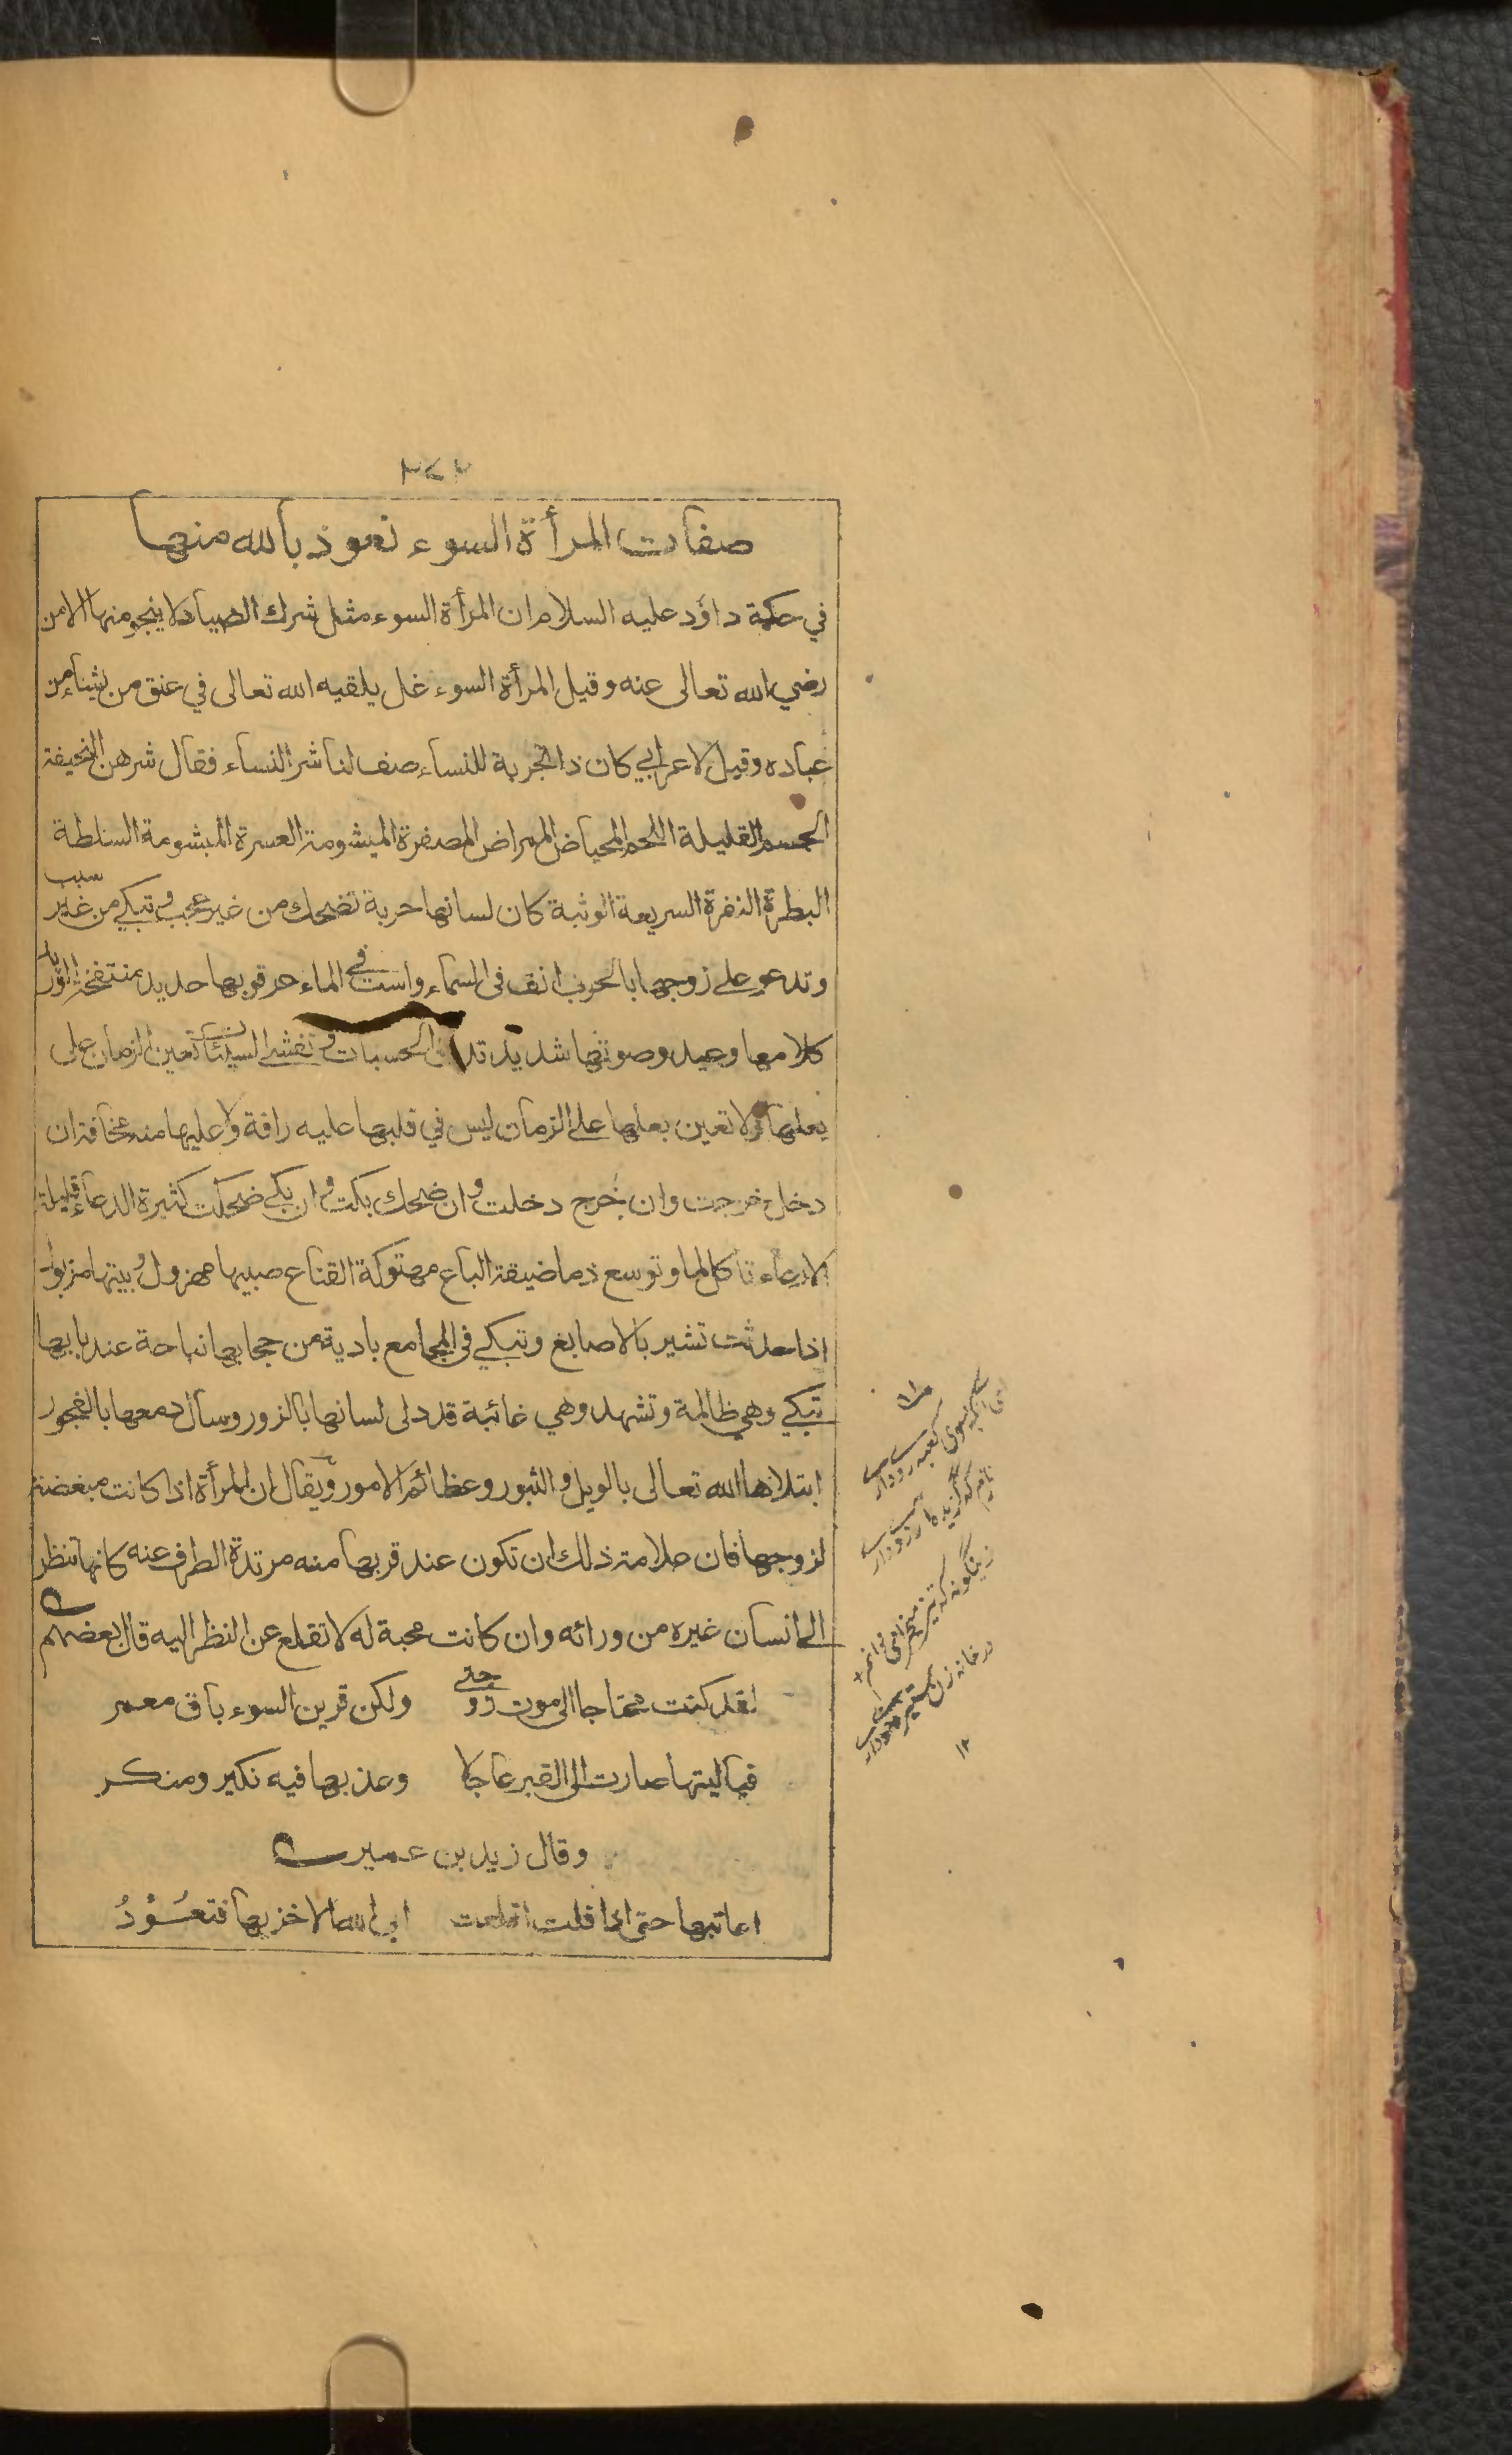 ٣٧٢
صفات المرأة السوء نعوذ بالله منها
في حكمة داؤد عليه السلام ان المرأة السوء مثل شرك الصياد لا ينجو منها الا من
رضي الله تعالى عنه وقيل المرأة السوء غل يلقيه الله تعالى في عنق من يشاء من
عباده وقيل لاعرابي كان ذا تجربة للنساء صف لنا شر النساء فقال شرهن النحيفة
الجسم القليلة اللحم المحياض الممراض المصفرة الميشومة العسرة المبشومة السلطة
البطرة النفرة السريعة الوثبة كان لسانها حربة تضحك من غير عجب وتبكي من غير سبب
وتدعو على زوجها بالحرب انف في السماء واست في الماء عرقوبها حديد منتفخة الوريد
كلامها وعيد وصوتها شديد تدفن الحسنات وتفشي السيئات تعين الزمان على
بعلها ولا تعين بعلها على الزمان ليس في قلبها عليه رافة ولا عليها منه مخافة ان
دخل خرجت وان خرج دخلت وان ضحك بكت وان بكى ضحكت كثيرة الدعاء قليلة
الارعاء تاكل لما وتوسع ذما ضيقة الباع مهتوكة القناع صبيها مهزول وبيتها مزبول
اذا حدثت تشير بالاصابع وتبكي في المجامع بادية من حجابها نباحة عند بابها
تبكي وهي ظالمة وتشهد وهي غائبة قد دلى لسانها بالزور وسال دمعها بالفجور
ابتلاها الله تعالى بالويل والثبور وعظائم الامور ويقال ان المرأة اذا كانت مبغضة
لزوجها فان علامة ذلك ان تكون عند قربها منه مرتدة الطرف عنه كانها تنظر
الى انسان غيره من ورائه وان كانت محبة له لا تقلع عن النظر اليه قال بعضهم
لقد كنت محتاجا الى موت زوجتي ولكن قرين السوء باق معمر
فيا ليتها صارت الى القبر عاجلا وعذبها فيه نكير ومنكر
وقال زيد بن عمير
اعاتبها حتى اذا قلت اقلعت ابى الله الا خزيها فتعود
كعبه رو دارد
در خانه زن
١٢